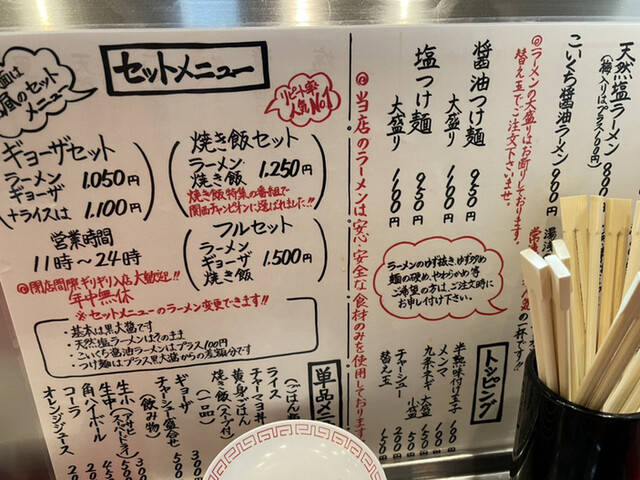 天然塩ラーメン 800
(梅入りはプラス100円)
こいくち醤油ラーメン 900
◎ラーメンの大盛りはお断りしております。
替え玉でご注文下さいませ。
醤油つけ麺 950円
大盛り 1100円
塩つけ麺 950円
大盛り 1100円
ラーメンのゆず抜き、ゆず少なめ
麺の硬め、やわらかめ等
ご希望の方は、ご注文時に
お申し付け下さい。
トッピング
半熟味付け玉子 100
メンマ 100
九条ネギ 大盛 150
小盛 100
チャーシュー 200
替え玉 150
◎当店のラーメンは安心・安全な食材のみを使用しております
セットメニュー
昼のセット
メニュー
リピート率
人気No1
ギョーザセット
ラーメン
ギョーザ 1.050円
+ライスは 1.100円
焼き飯セット
ラーメン
焼き飯 1.250円
焼き飯特集の番組で
関西チャンピオンに選ばれました!!
フルセット
ラーメン
ギョーザ
焼き飯 1.500円
営業時間
11時〜24時
◎閉店間際ギリギリ入店大歓迎!!
年中無休
※セットメニューのラーメン変更できます!!
・基本は黒大醤です
・天然塩ラーメンはそのまま
・こいくち醤油ラーメンはプラス100円
・つけ麺はプラス黒大醤からの差額分です
単品メニ
(ごはん
ライス
チャーマヨ丼
黄身ごはん
焼き飯(スープ付)
(一品)
ギョーザ 300
チャーシュー盛合せ 500
(飲み物)
生ホ
生中(アサヒスーパードライ)
角ハイボール
コーラ 200
オレンジジュース 20